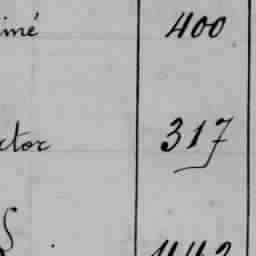 iné 400
ctor 317